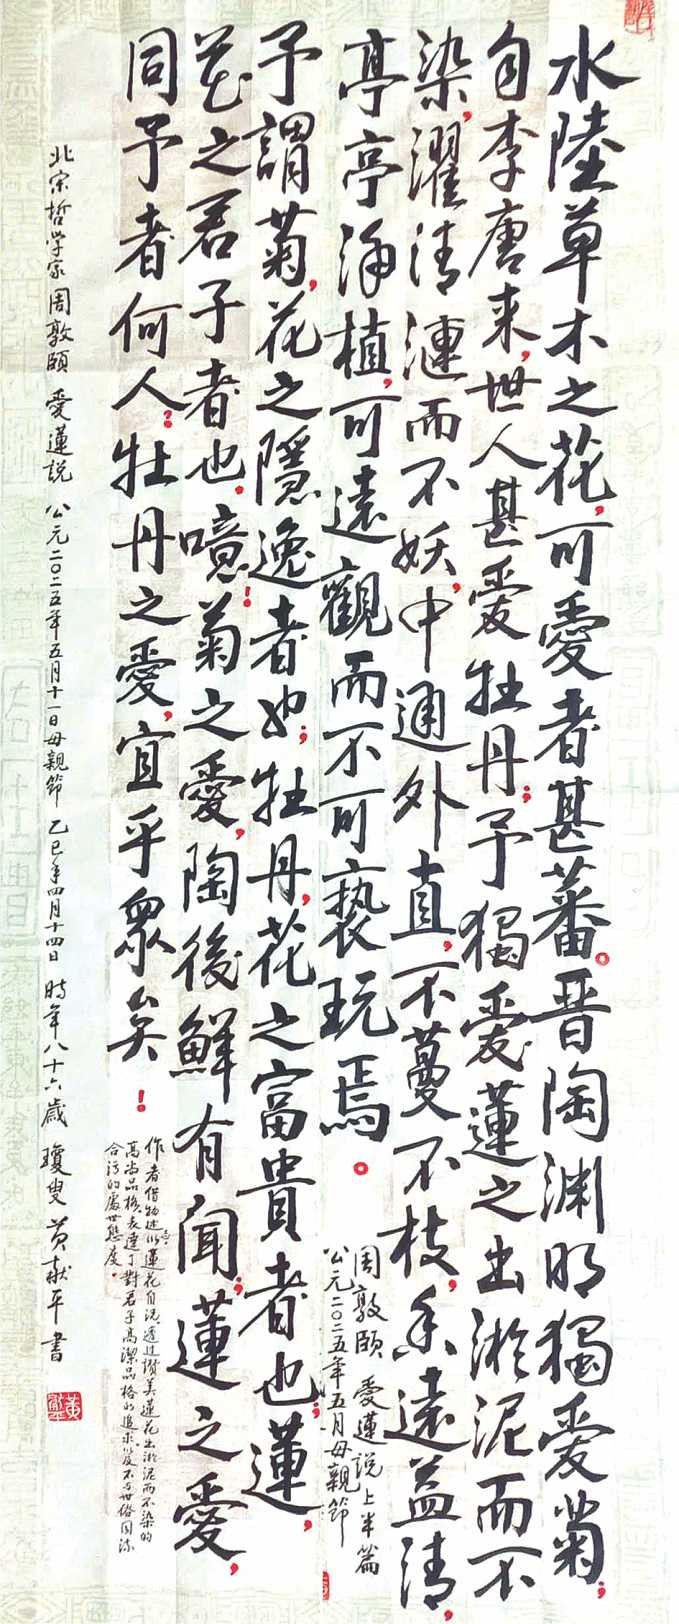 水陸草木之花，可愛者甚蕃。晋陶渊明獨愛菊；
自李唐来，世人甚愛牡丹；予獨愛蓮之出淤泥而不
染，濯清漣而不妖，中通外直，不蔓不枝，香遠益清，
亭亭净植，可遠觀而不可褻玩焉。
周敦頤 愛蓮説上半篇
公元二〇二五年五月母親節
予謂菊，花之隱逸者也；牡丹，花之富貴者也；蓮，
花之君子者也。噫！菊之愛，陶後鮮有闻；蓮之愛，
同予者何人？牡丹之愛，宜乎眾矣！
作者借物述志以蓮花自况透过讃美蓮花出淤泥而不染的
高尚品格表達了對君子高潔品格的追求以及不与世俗同流
合污的處世態度。
北宗哲学家周敦頤 愛蓮説 公元二〇二五年五月十一日母親節 乙巳年四月十四日 時年八十六歲 瓊叟 黄献平書